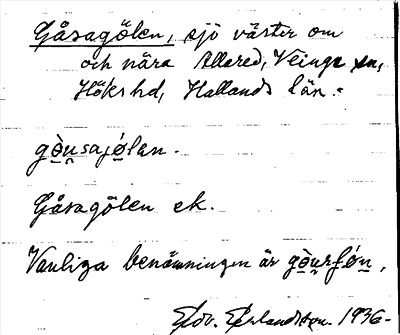 Gåsagölen, sjö väster om
och nära Allared, Veinge sn,
Höks hd, Hallands län.
gò̤u̯sajö́lan.
Gåsagölen ek.
Vanliga benämningen är gò̤u̯rfö́n,
Edv. Erlandsson. 1936-